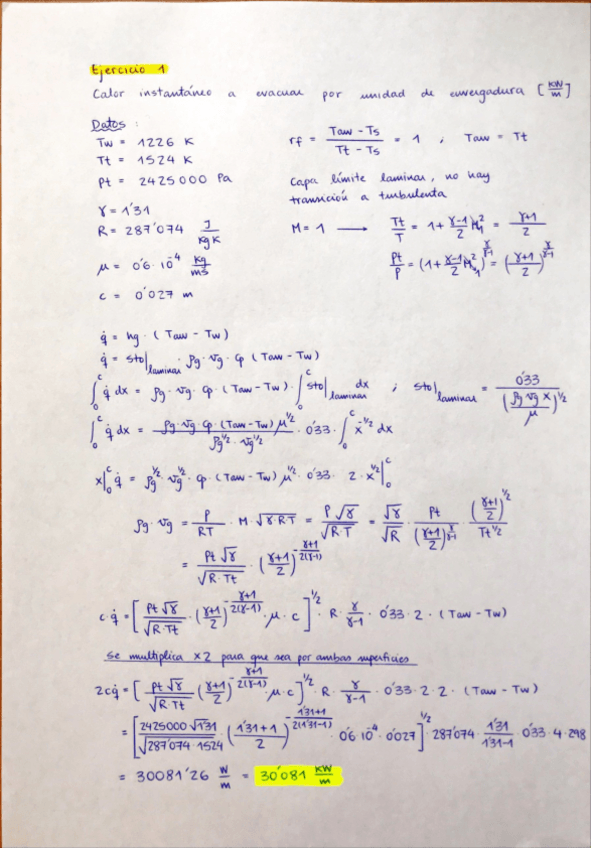 Ejercicio 1
Calor instantáneo a evacuar por unidad de envergadura [kW/m]
Datos:
Tw = 1226 K
Tt = 1524 K
Pt = 2425000 Pa
γ = 1'31
R = 287'074 J/kgK
μ = 0'6·10^-4 kg/ms
c = 0'027 m
rf = (Taw - Ts)/(Tt - Ts) = 1 ; Taw = Tt
Capa límite laminar, no hay
transición a turbulenta
M = 1 → Tt/T = 1 + (γ-1)/2 M² = (γ+1)/2
Pt/P = (1 + (γ-1)/2 M²)^(γ/(γ-1)) = ((γ+1)/2)^(γ/(γ-1))
q̇ = hg · (Taw - Tw)
q̇ = Sto|laminar · ρg · vg · cp (Taw - Tw)
∫₀ᶜ q̇ dx = ρg · vg · cp · (Taw - Tw) · ∫₀ᶜ Sto|laminar dx ; Sto|laminar = 0'33/(ρg vg x/μ)^1/2
∫₀ᶜ q̇ dx = (ρg · vg · cp · (Taw - Tw) μ^1/2)/(ρg^1/2 · vg^1/2) · 0'33 · ∫₀ᶜ x^-1/2 dx
x|₀ᶜ q̇ = ρg^1/2 · vg^1/2 · cp · (Taw - Tw) μ^1/2 · 0'33 · 2 · x^1/2|₀ᶜ
ρg · vg = P/RT · M · √(γ·R·T) = P√γ/√(R·T) = √γ/√R · Pt/((γ+1)/2)^(γ/(γ-1)) · ((γ+1)/2)^1/2/Tt^1/2
= Pt√γ/√(R·Tt) · ((γ+1)/2)^(-(γ+1)/(2(γ-1)))
c·q̇ = [Pt√γ/√(R·Tt) · ((γ+1)/2)^(-(γ+1)/(2(γ-1))) · μ · c]^1/2 · R · γ/(γ-1) · 0'33 · 2 · (Taw - Tw)
Se multiplica x2 para que sea por ambas superficies
2cq̇ = [Pt√γ/√(R·Tt) ((γ+1)/2)^(-(γ+1)/(2(γ-1))) · μ · c]^1/2 · R · γ/(γ-1) · 0'33 · 2 · 2 · (Taw - Tw)
= [2425000 √1'31/√(287'074 · 1524) · ((1'31+1)/2)^(-(1'31+1)/(2(1'31-1))) · 0'6·10^-4 · 0'027]^1/2 · 287'074 · 1'31/(1'31-1) · 0'33 · 4 · 298
= 30081'26 W/m = 30'081 kW/m